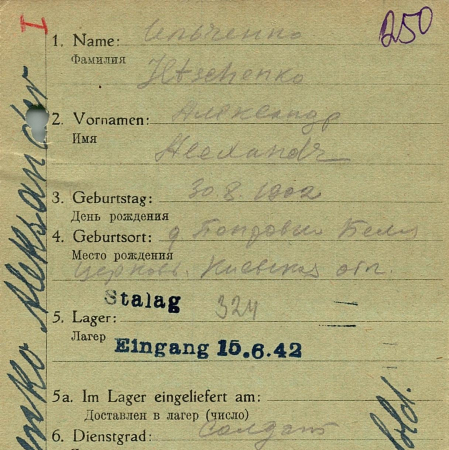 I
250
1. Name: Ильченко
Фамилия
Iltschenko
2. Vornamen: Александр
Имя
Alexandr
3. Geburtstag: 30.8.1902
День рождения
4. Geburtsort: д
Место рождения
Церковь. Киевская обл.
Stalag 324
5. Lager:
Лагерь
Eingang 15.6.42
5a. Im Lager eingeliefert am:
Доставлен в лагерь (число)
6. Dienstgrad: Солдат
Sold.
enko Aleksander